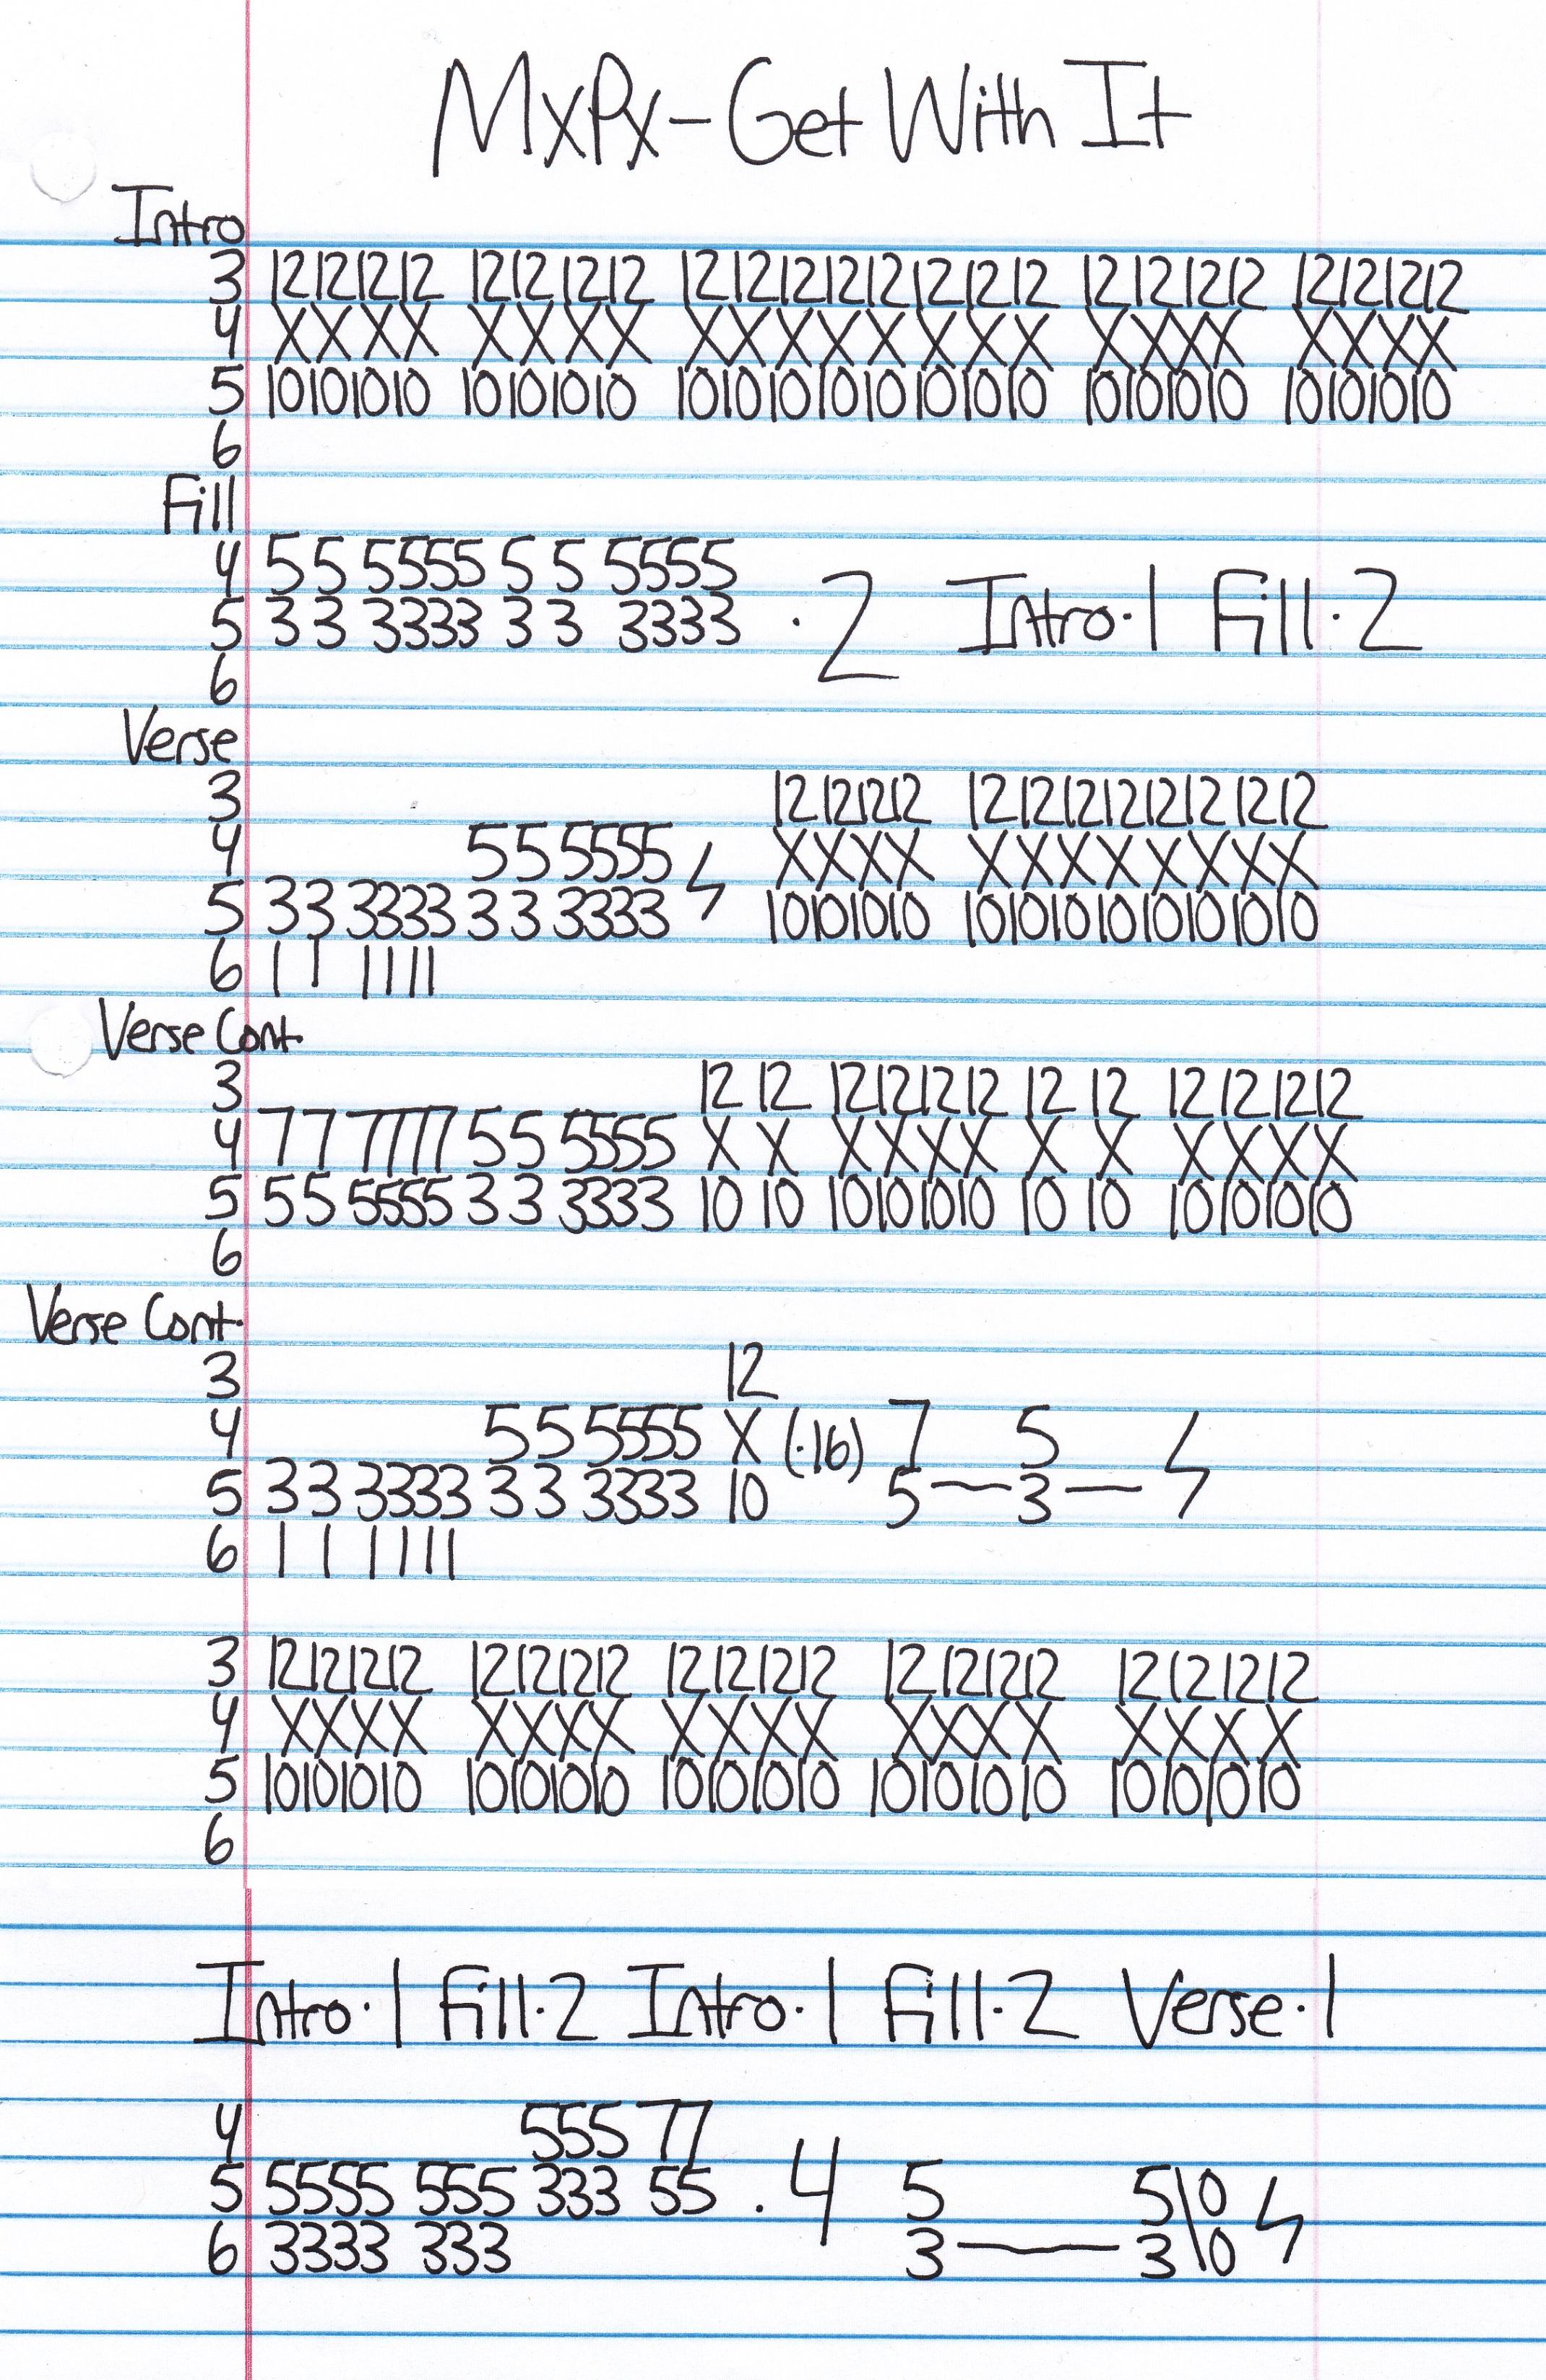 MxPx-Get With It
Intro
3 12121212 12121212 1212121212121212 12121212 12121212
4 XXXX XXXX XXXXXXXX XXXX XXXX
5 10101010 10101010 1010101010101010 10101010 10101010
6
Fill
4 55 5555 5 5 5555
5 33 3333 3 3 3333 ·2 Intro·1 Fill·2
6
Verse
3 12121212 1212121212121212
4 55 5555 XXXX XXXXXXXX
5 33 3333 33 3333 10101010 1010101010101010
6 11 1111
Verse Cont.
3 12 12 12121212 12 12 12121212
4 77 7777 55 5555 X X XXXX X X XXXX
5 55 5555 33 3333 10 10 10101010 10 10 10101010
6
Verse Cont.
3 12
4 55 5555 X (·16) 7 5
5 33 3333 33 3333 10 5—3—
6 1 1 1111
3 12121212 12121212 12121212 12121212 12121212
4 XXXX XXXX XXXX XXXX XXXX
5 10101010 10101010 10101010 10101010 10101010
6
Intro·1 Fill·2 Intro·1 Fill·2 Verse·1
4 555 77
5 5555 555 333 55 ·4 5 5\0
6 3333 333 3—3\0